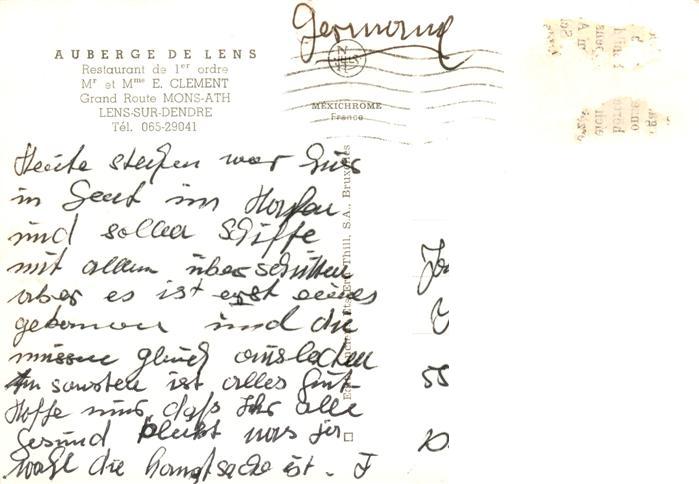 Germany
AUBERGE DE LENS
Restaurant de 1er ordre
Mr et Mme E. CLEMENT
Grand Route MONS-ATH
LENS-SUR-DENDRE
Tél. 065-29041
MÉXICHROME
France
Heute stehen wir hier
in Gent im Hafen
und sollen Schiffe
mit allem überschütten
aber es ist erst eines
gekommen und die
müssen gleich ausladen
Ansonsten ist alles Gut
Hoffe nur, daß Ihr alle
Gesund bleibt was ja
wohl die hauptsache ist.
Thill, S.A., Bruxelles
55